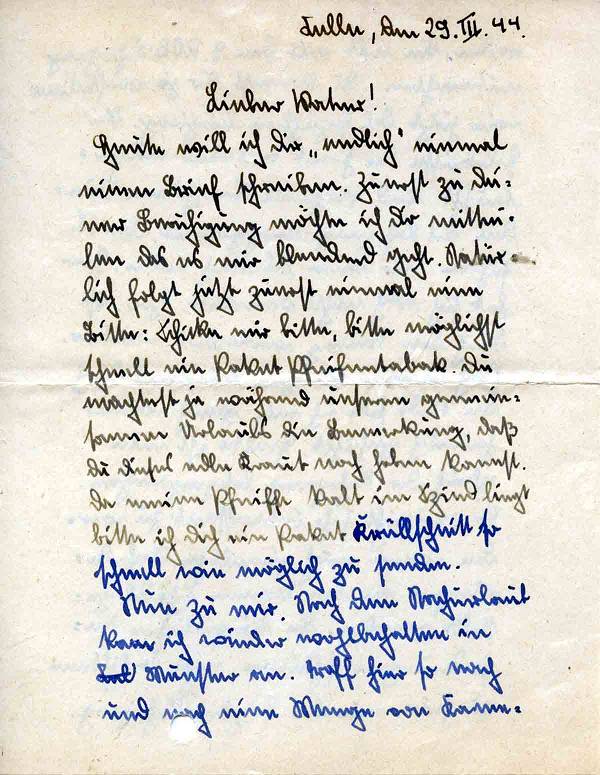 Tulln, den 29. III. 44.
Lieber Vater!
Heute will ich dir „endlich" einmal
einen Brief schreiben. Zuerst zu dei-
ner Beruhigung möchte ich dir mittei-
len das es mir blendend geht. Natür-
lich folgt jetzt zuerst einmal eine
Bitte: Schicke mir bitte, bitte möglichst
schnell ein Paket Pfeifentabak. Du
machtest ja während unseren gemein-
samen Urlaubs die Bemerkung, daß
du dieses edle Kraut noch haben kannst.
Da meine Pfeiffe kalt im Spind liegt
bitte ich dich ein Paket Krüllschnitt so
schnell wie möglich zu senden.
Nun zu mir. Nach dem Nachurlaub
kam ich wieder wohlbehalten in
Munster an. traff hier so nach
und nach eine Menge von Kame-